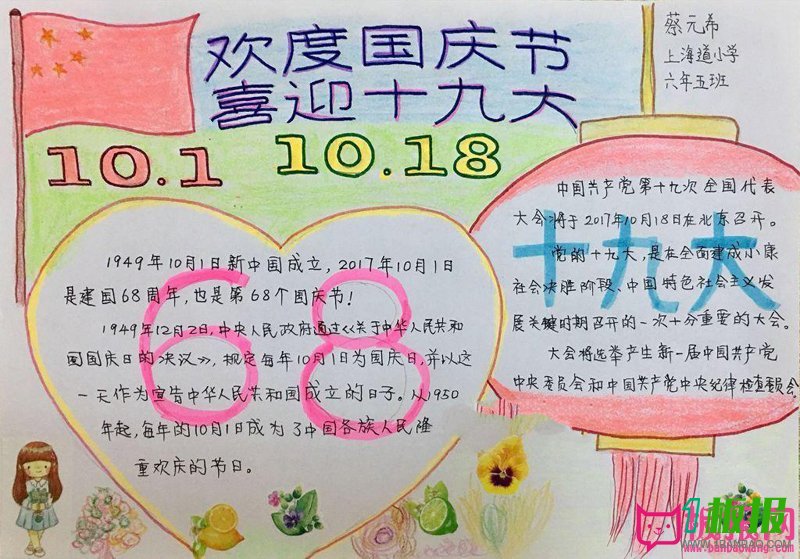 欢度国庆节
喜迎十九大
蔡元希
上海道小学
六年五班
10.1 10.18
1949年10月1日新中国成立，2017年10月1日
是建国68周年，也是第68个国庆节！
1949年12月2日，中央人民政府通过《关于中华人民共和
国国庆日的决议》，规定每年10月1日为国庆日，并以这
一天作为宣告中华人民共和国成立的日子。从1950
年起，每年的10月1日成为了中国各族人民隆
重欢庆的节日。
68
中国共产党第十九次全国代表
大会将于2017年10月18日在北京召开。
党的十九大，是在全面建成小康
社会决胜阶段、中国特色社会主义发
展关键时期召开的一次十分重要的大会。
大会将选举产生新一届中国共产党
中央委员会和中国共产党中央纪律检查委员会。
十九大
板报
WWW.1BANBAO.COM